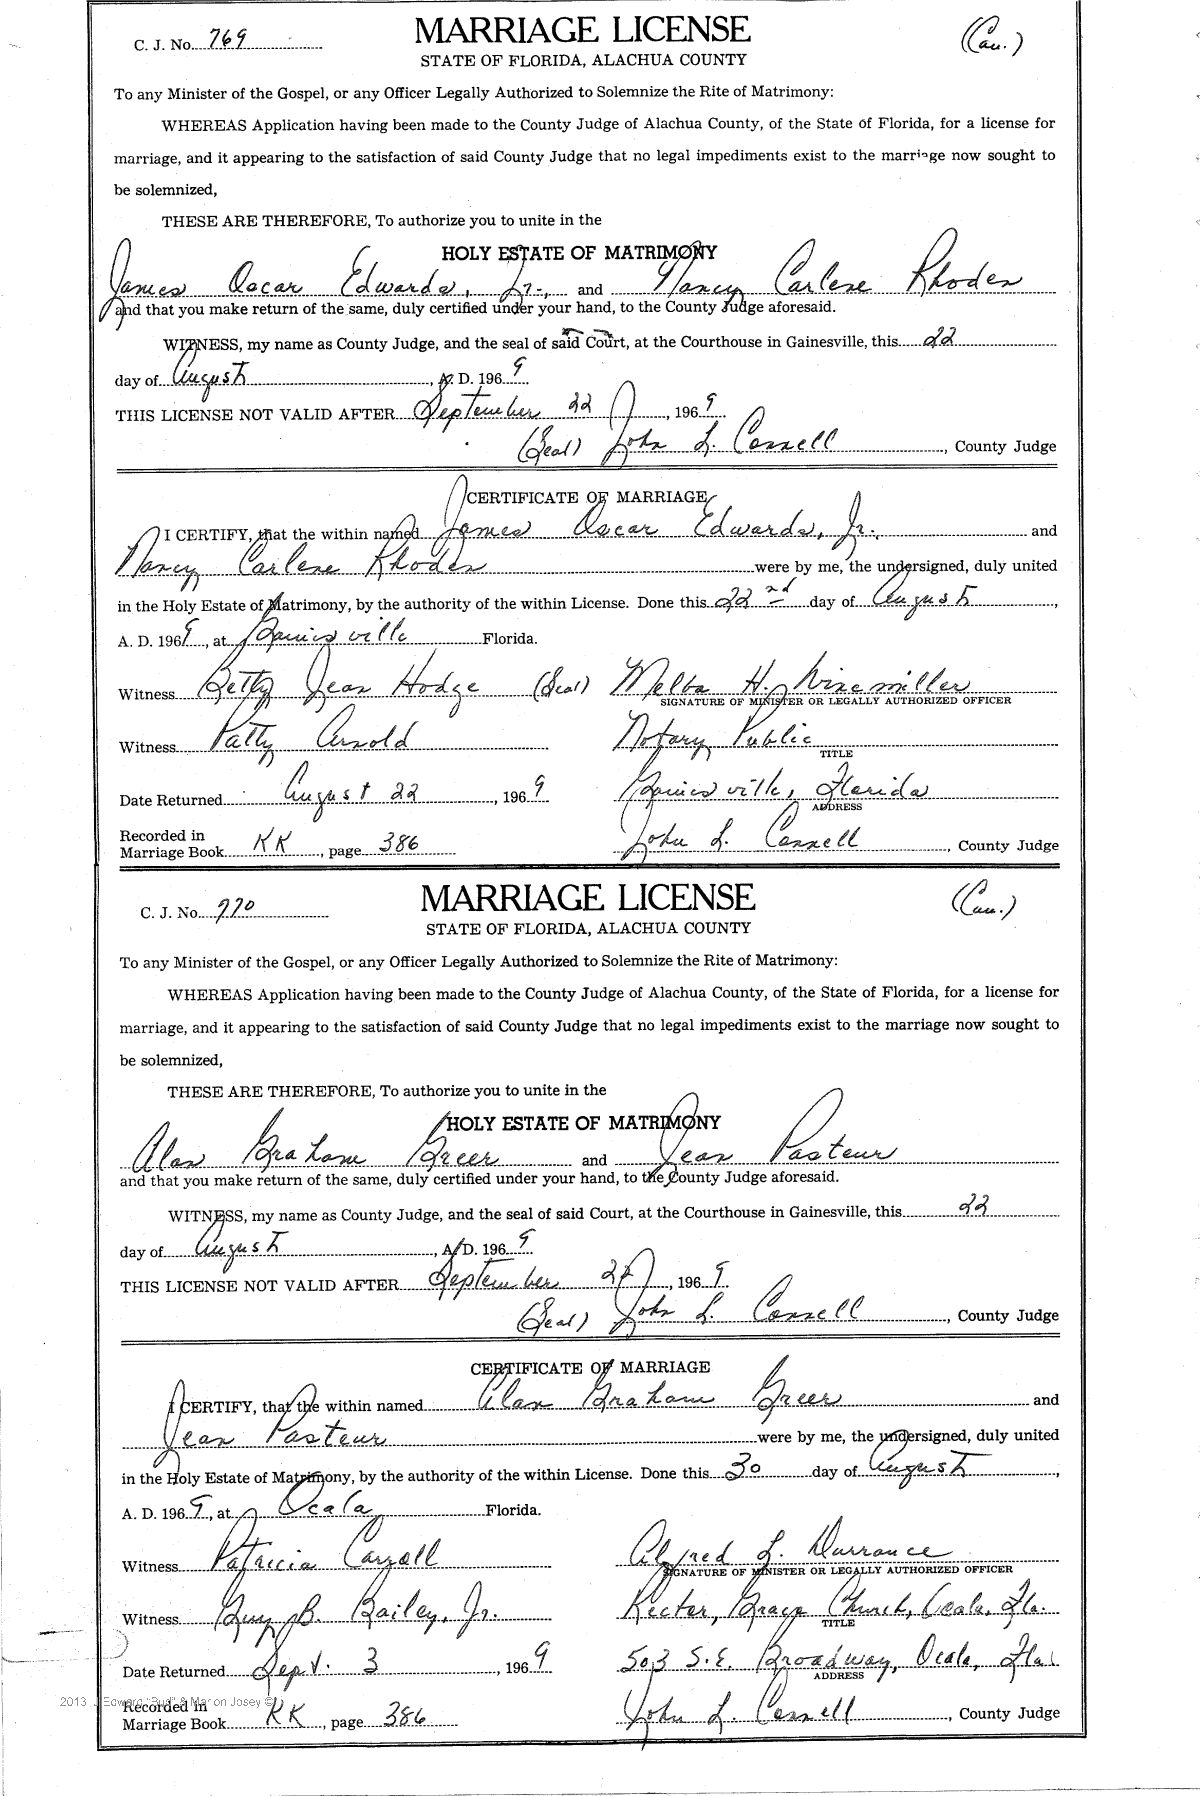 C. J. No. 769 MARRIAGE LICENSE (Cau.)
STATE OF FLORIDA, ALACHUA COUNTY
To any Minister of the Gospel, or any Officer Legally Authorized to Solemnize the Rite of Matrimony:
WHEREAS Application having been made to the County Judge of Alachua County, of the State of Florida, for a license for
marriage, and it appearing to the satisfaction of said County Judge that no legal impediments exist to the marriage now sought to
be solemnized,
THESE ARE THEREFORE, To authorize you to unite in the
HOLY ESTATE OF MATRIMONY
James Oscar Edwards, Jr., and Nancy Carlene Rhoden
and that you make return of the same, duly certified under your hand, to the County Judge aforesaid.
WITNESS, my name as County Judge, and the seal of said Court, at the Courthouse in Gainesville, this 22
day of August, A. D. 1969
THIS LICENSE NOT VALID AFTER September 22, 1969
(Seal) John L. Connell, County Judge
CERTIFICATE OF MARRIAGE
I CERTIFY, that the within named James Oscar Edwards, Jr., and
Nancy Carlene Rhoden were by me, the undersigned, duly united
in the Holy Estate of Matrimony, by the authority of the within License. Done this 22nd day of August,
A. D. 1969, at Gainesville Florida.
Witness Betty Jean Hodge (Seal) Melba H. Winemiller
SIGNATURE OF MINISTER OR LEGALLY AUTHORIZED OFFICER
Witness Patty Arnold Notary Public
TITLE
Date Returned August 22, 1969 Gainesville, Florida
ADDRESS
Recorded in
Marriage Book KK, page 386 John L. Connell, County Judge
C. J. No. 770 MARRIAGE LICENSE (Cau.)
STATE OF FLORIDA, ALACHUA COUNTY
To any Minister of the Gospel, or any Officer Legally Authorized to Solemnize the Rite of Matrimony:
WHEREAS Application having been made to the County Judge of Alachua County, of the State of Florida, for a license for
marriage, and it appearing to the satisfaction of said County Judge that no legal impediments exist to the marriage now sought to
be solemnized,
THESE ARE THEREFORE, To authorize you to unite in the
HOLY ESTATE OF MATRIMONY
Alan Graham Greer and Jean Pasteur
and that you make return of the same, duly certified under your hand, to the County Judge aforesaid.
WITNESS, my name as County Judge, and the seal of said Court, at the Courthouse in Gainesville, this 22
day of August, A. D. 1969
THIS LICENSE NOT VALID AFTER September 22, 1969
(Seal) John L. Connell, County Judge
CERTIFICATE OF MARRIAGE
I CERTIFY, that the within named Alan Graham Greer and
Jean Pasteur were by me, the undersigned, duly united
in the Holy Estate of Matrimony, by the authority of the within License. Done this 30 day of August,
A. D. 1969, at Ocala Florida.
Witness Patricia Carroll Alfred L. Durrance
SIGNATURE OF MINISTER OR LEGALLY AUTHORIZED OFFICER
Witness Guy B. Bailey, Jr. Rector, Grace Church, Ocala, Fla.
TITLE
Date Returned Sept. 3, 1969 503 S.E. Broadway, Ocala, Fla.
ADDRESS
2013 J Edward "Bud" & Marion Josey ©
Recorded in
Marriage Book KK, page 386 John L. Connell, County Judge